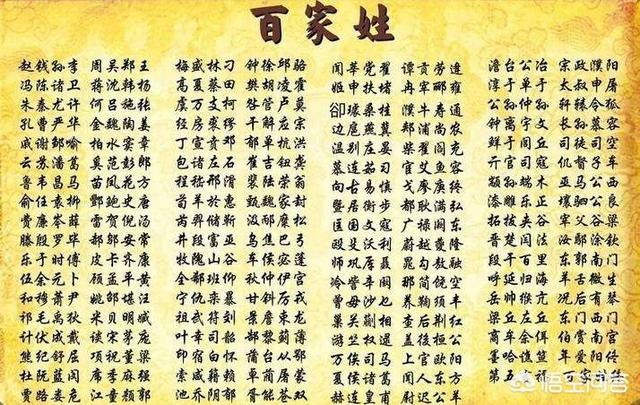 百家姓
赵钱孙李 周吴郑王
冯陈褚卫 蒋沈韩杨
朱秦尤许 何吕施张
孔曹严华 金魏陶姜
戚谢邹喻 柏水窦章
云苏潘葛 奚范彭郎
鲁韦昌马 苗凤花方
俞任袁柳 酆鲍史唐
费廉岑薛 雷贺倪汤
滕殷罗毕 郝邬安常
乐于时傅 皮卞齐康
伍余元卜 顾孟平黄
和穆萧尹 姚邵湛汪
祁毛禹狄 米贝明臧
计伏成戴 谈宋茅庞
熊纪舒屈 项祝董梁
杜阮蓝闵 席季麻强
贾路娄危 江童颜郭
梅盛林刁 钟徐邱骆
高夏蔡田 樊胡凌霍
虞万支柯 昝管卢莫
经房裘缪 干解应宗
丁宣贲邓 郁单杭洪
包诸左石 崔吉钮龚
程嵇邢滑 裴陆荣翁
荀羊於惠 甄曲家封
芮羿储靳 汲邴糜松
井段富巫 乌焦巴弓
牧隗山谷 车侯宓蓬
全郗班仰 秋仲伊宫
宁仇栾暴 甘钭厉戎
祖武符刘 景詹束龙
叶幸司韶 郜黎蓟薄
印宿白怀 蒲邰从鄂
索咸籍赖 卓蔺屠蒙
池乔阴郁 胥能苍双
闻莘党翟 谭贡劳逄
姬申扶堵 冉宰郦雍
卻璩桑桂 濮牛寿通
边扈燕冀 郏浦尚农
温别庄晏 柴瞿阎充
慕连茹习 宦艾鱼容
向古易慎 戈廖庾终
暨居衡步 都耿满弘
匡国文寇 广禄阙东
殴殳沃利 蔚越夔隆
师巩厍聂 晁勾敖融
冷訾辛阚 那简饶空
曾毋沙乜 养鞠须丰
巢关蒯相 查后荆红
游竺权逯 盖益桓公
万俟司马 上官欧阳
夏侯诸葛 闻人东方
赫连皇甫 尉迟公羊
澹台公冶 宗政濮阳
淳于单于 太叔申屠
公孙仲孙 轩辕令狐
钟离宇文 长孙慕容
鲜于闾丘 司徒司空
亓官司寇 仉督子车
颛孙端木 巫马公西
漆雕乐正 壤驷公良
拓跋夹谷 宰父谷梁
晋楚闫法 汝鄢涂钦
段干百里 东郭南门
呼延归海 羊舌微生
岳帅缑亢 况后有琴
梁丘左丘 东门西门
商牟佘佴 伯赏南宫
墨哈谯笪 年爱阳佟
第五言福 百家姓终
悟空问答